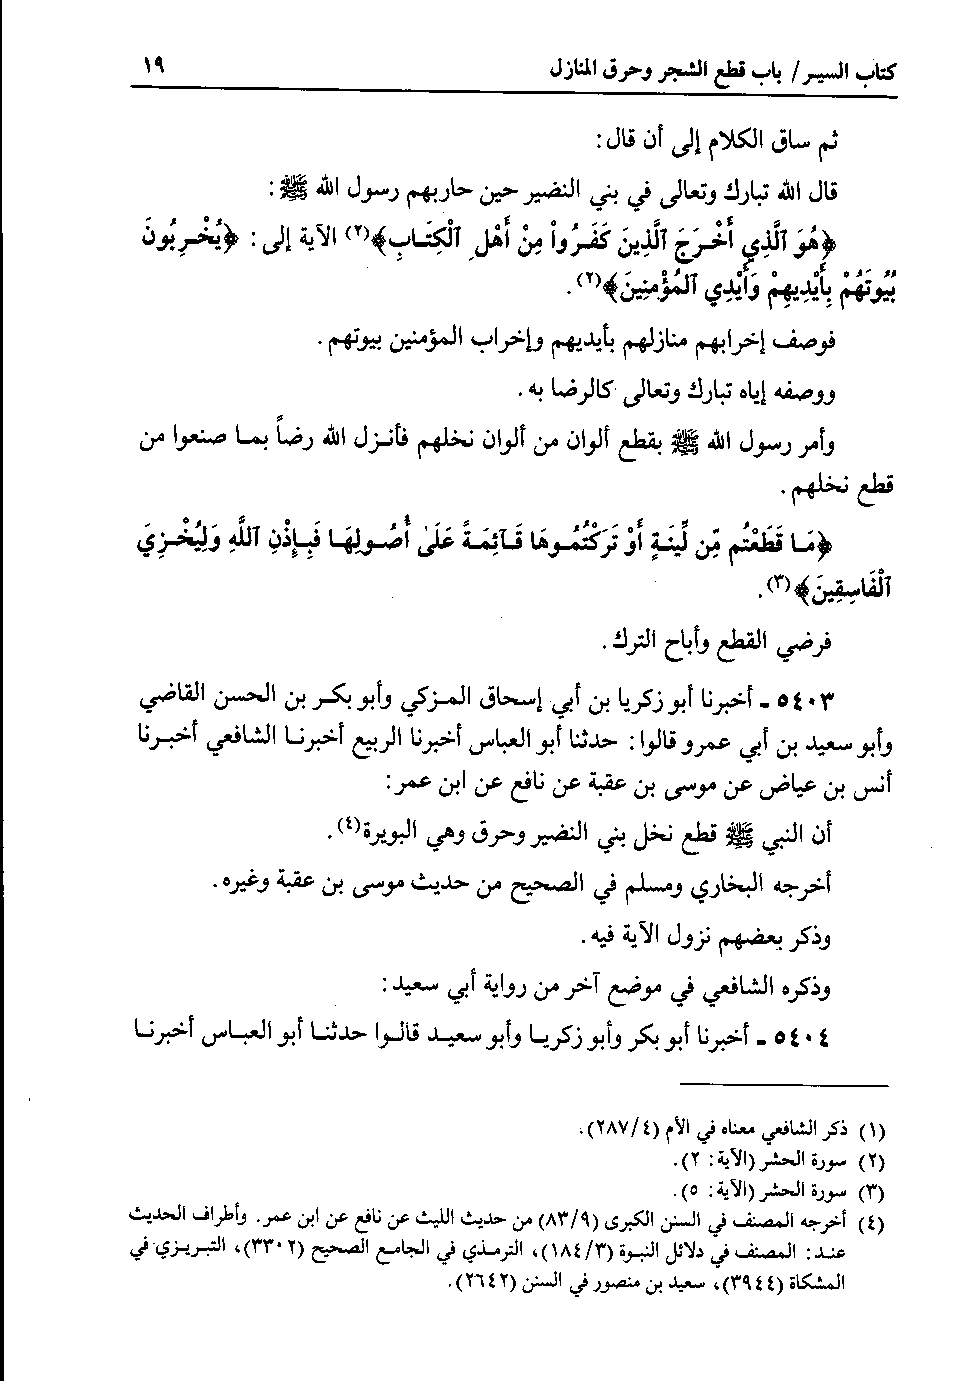 كتاب السير/ باب قطع الشجر وحرق المنازل ١٩
ثم ساق الكلام إلى أن قال:
قال الله تبارك وتعالى في بني النضير حين حاربهم رسول الله ﷺ:
﴿هُوَ ٱلَّذِي أَخْرَجَ ٱلَّذِينَ كَفَرُواْ مِنْ أَهْلِ ٱلْكِتَـٰبِ﴾(٢) الآية إلى: ﴿يُخْرِبُونَ
بُيُوتَهُمْ بِأَيْدِيهِمْ وَأَيْدِي ٱلمُؤْمِنِينَ﴾(٢).
فوصف إخرابهم منازلهم بأيديهم وإخراب المؤمنين بيوتهم.
ووصفه إياه تبارك وتعالى كالرضا به.
وأمر رسول الله ﷺ بقطع ألوان من ألوان نخلهم فأنزل الله رضاً بما صنعوا من
قطع نخلهم.
﴿مَا قَطَعْتُم مِّن لِّينَةٍ أَوْ تَرَكْتُمُوهَا قَآئِمَةً عَلَىٰ أُصُولِهَا فَبِإِذْنِ ٱللَّهِ وَلِيُخْزِيَ
ٱلْفَاسِقِينَ﴾(٣).
فرضي القطع وأباح الترك.
٥٤٠٣ ـ أخبرنا أبو زكريا بن أبي إسحاق المزكي وأبو بكر بن الحسن القاضي
وأبو سعيد بن أبي عمرو قالوا: حدثنا أبو العباس أخبرنا الربيع أخبرنا الشافعي أخبرنا
أنس بن عياض عن موسى بن عقبة عن نافع عن ابن عمر:
أن النبي ﷺ قطع نخل بني النضير وحرق وهي البويرة(٤).
أخرجه البخاري ومسلم في الصحيح من حديث موسى بن عقبة وغيره.
وذكر بعضهم نزول الآية فيه.
وذكره الشافعي في موضع آخر من رواية أبي سعيد:
٥٤٠٤ ـ أخبرنا أبو بكر وأبو زكريا وأبو سعيد قالوا حدثنا أبو العباس أخبرنا
(١) ذكر الشافعي معناه في الأم (٤/ ٢٨٧).
(٢) سورة الحشر (الآية: ٢).
(٣) سورة الحشر (الآية: ٥).
(٤) أخرجه المصنف في السنن الكبرى (٩/ ٨٣) من حديث الليث عن نافع عن ابن عمر. وأطراف الحديث
عند: المصنف في دلائل النبوة (٣/ ١٨٤)، الترمذي في الجامع الصحيح (٣٣٠٢)، التبريزي في
المشكاة (٣٩٤٤)، سعيد بن منصور في السنن (٢٦٤٢).